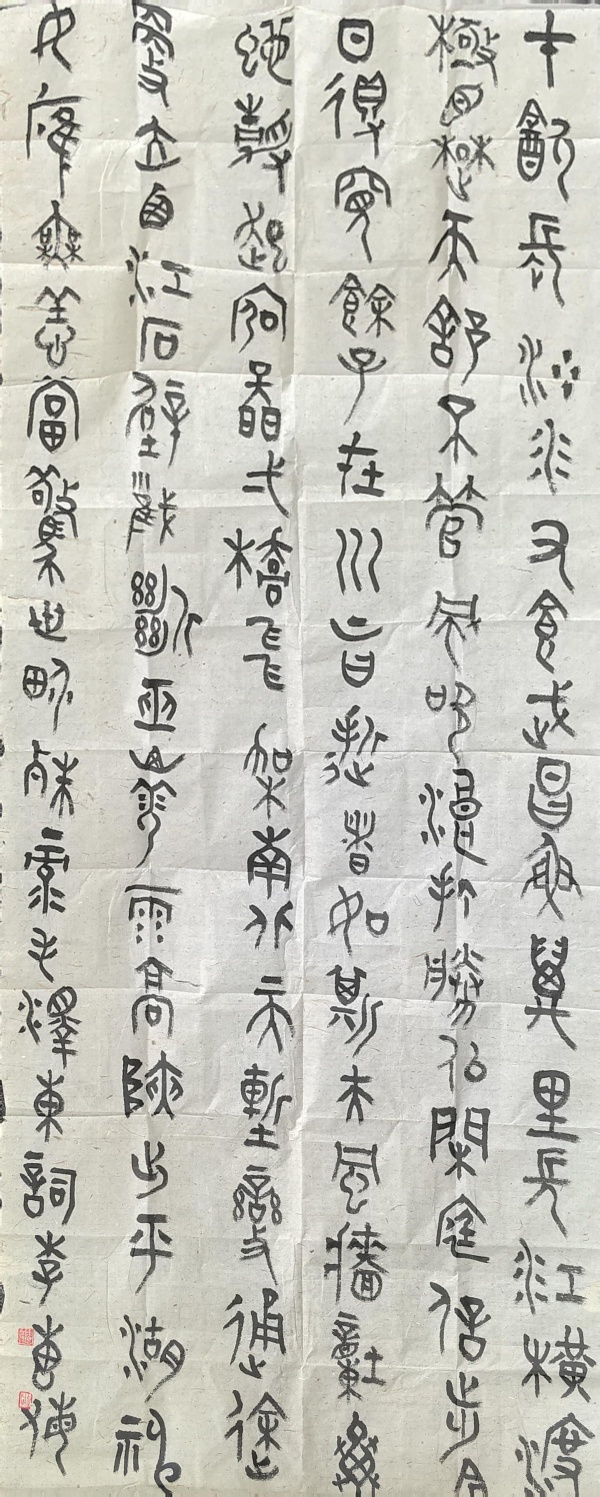 才飲長沙水又食武昌魚萬里長江橫渡
極目楚天舒不管風吹浪打勝似閑庭信步今
日得寬餘子在川上曰逝者如斯夫風檣動龜
蛇靜起宏圖弌橋飛架南北天塹變通途
更立西江石壁截斷巫山雲雨高峽出平湖神
女應無恙當驚世界殊毛澤東詞李